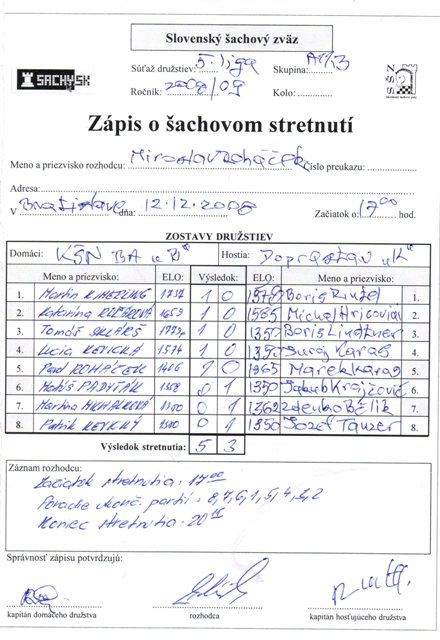 Slovenský šachový zväz
SACHY.SK
Súťaž družstiev: 5. liga Skupina:
SŠZ
Ročník: 2008/09 Kolo:
Zápis o šachovom stretnutí
Meno a priezvisko rozhodcu: Miroslav Roháček Číslo preukazu:
Adresa:
V Bratislave dňa: 12.12.2008 Začiatok o 17 00 hod.
ZOSTAVY DRUŽSTIEV
Domáci: KŠN BA Hostia: Doprastav "K"
Meno a priezvisko: ELO: Výsledok: ELO: Meno a priezvisko:
1. Martin 1 0 Boris 1.
2. Katarína 1659 1 0 1565 Michal Hricovini 2.
3. Tomáš 1 0 1350 Boris Lindtner 3.
4. Lucia 1574 1 0 Juraj Karas 4.
5. ROHÁČEK 1 0 Marek Karas 5.
6. Matúš 0 1 1350 Jakub Krajčovič 6.
7. Martina 0 1 1362 Zdenko Bélik 7.
8. Patrik 0 1 1350 Jozef Tauzer 8.
Výsledok stretnutia: 5 3
Záznam rozhodcu:
Začiatok stretnutia: 17 00
Poradie ukonč. partií: 8,7,6,1,5,4,3,2
Koniec stretnutia: 20 15
Správnosť zápisu potvrdzujú:
kapitán domáceho družstva rozhodca kapitán hosťujúceho družstva